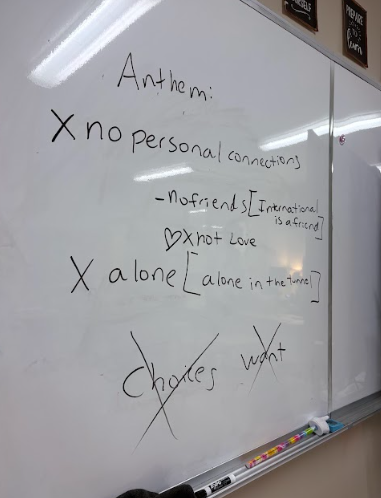 Anthem:
X no personal connections
- no friends [International is a friend]
♡ X not Love
X alone [alone in the tunnel]
Choices want
PREPARE
TO
Learn